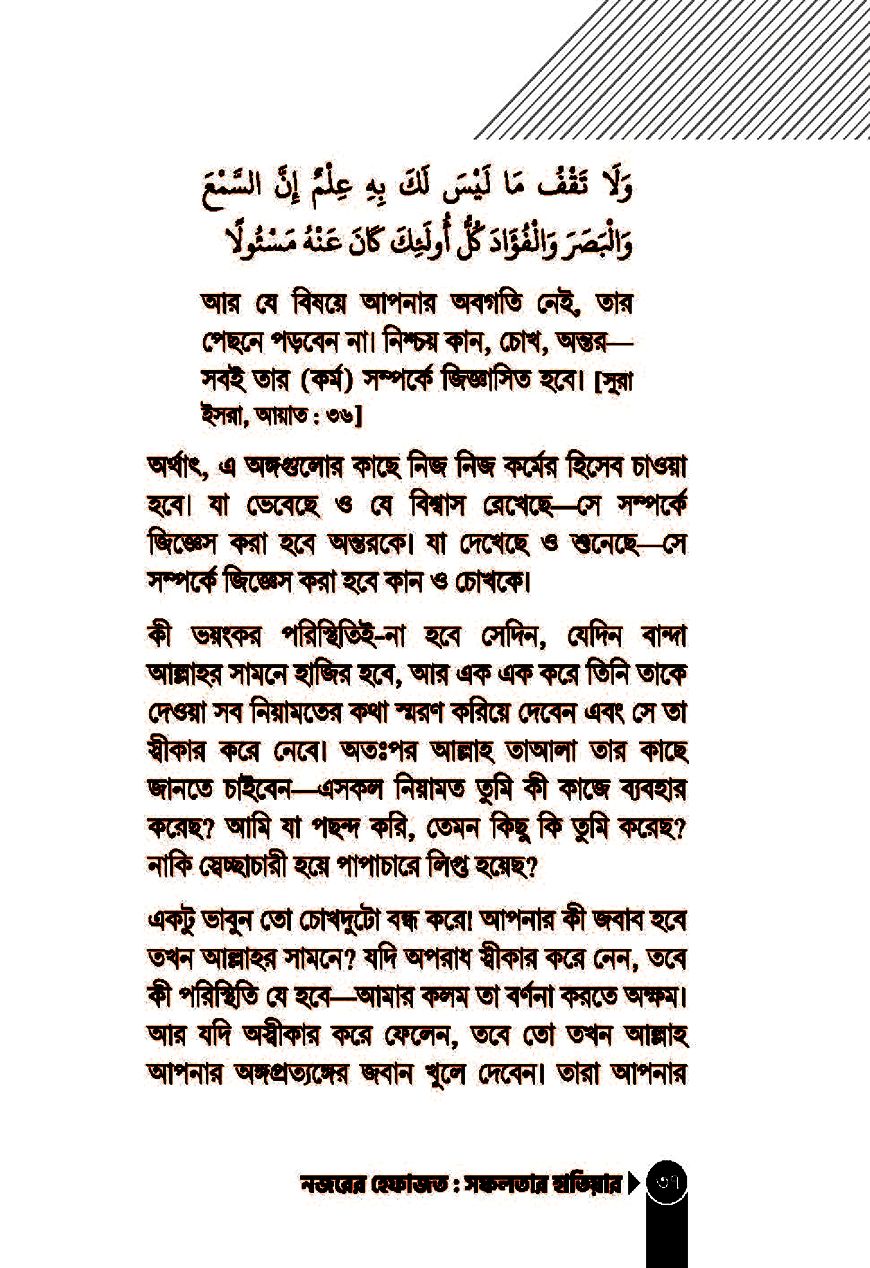 وَلَا تَقْفُ مَا لَيْسَ لَكَ بِهِ عِلْمٌ إِنَّ السَّمْعَ
وَالْبَصَرَ وَالْفُؤَادَ كُلُّ أُولَئِكَ كَانَ عَنْهُ مَسْئُولًا
আর যে বিষয়ে আপনার অবগতি নেই, তার
পেছনে পড়বেন না। নিশ্চয় কান, চোখ, অন্তর—
সবই তার (কর্ম) সম্পর্কে জিজ্ঞাসিত হবে। [সূরা
ইসরা, আয়াত : ৩৬]
অর্থাৎ, এ অঙ্গগুলোর কাছে নিজ নিজ কর্মের হিসেব চাওয়া
হবে। যা ভেবেছে ও যে বিশ্বাস রেখেছে—সে সম্পর্কে
জিজ্ঞেস করা হবে অন্তরকে। যা দেখেছে ও শুনেছে—সে
সম্পর্কে জিজ্ঞেস করা হবে কান ও চোখকে।
কী ভয়ংকর পরিস্থিতিই-না হবে সেদিন, যেদিন বান্দা
আল্লাহর সামনে হাজির হবে, আর এক এক করে তিনি তাকে
দেওয়া সব নিয়ামতের কথা স্মরণ করিয়ে দেবেন এবং সে তা
স্বীকার করে নেবে। অতঃপর আল্লাহ তাআলা তার কাছে
জানতে চাইবেন—এসকল নিয়ামত তুমি কী কাজে ব্যবহার
করেছ? আমি যা পছন্দ করি, তেমন কিছু কি তুমি করেছ?
নাকি স্বেচ্ছাচারী হয়ে পাপাচারে লিপ্ত হয়েছ?
একটু ভাবুন তো চোখদুটো বন্ধ করে! আপনার কী জবাব হবে
তখন আল্লাহর সামনে? যদি অপরাধ স্বীকার করে নেন, তবে
কী পরিস্থিতি যে হবে—আমার কলম তা বর্ণনা করতে অক্ষম।
আর যদি অস্বীকার করে ফেলেন, তবে তো তখন আল্লাহ
আপনার অঙ্গপ্রত্যঙ্গের জবান খুলে দেবেন। তারা আপনার
নজরের হেফাজত : সফলতার হাতিয়ার ৩৭